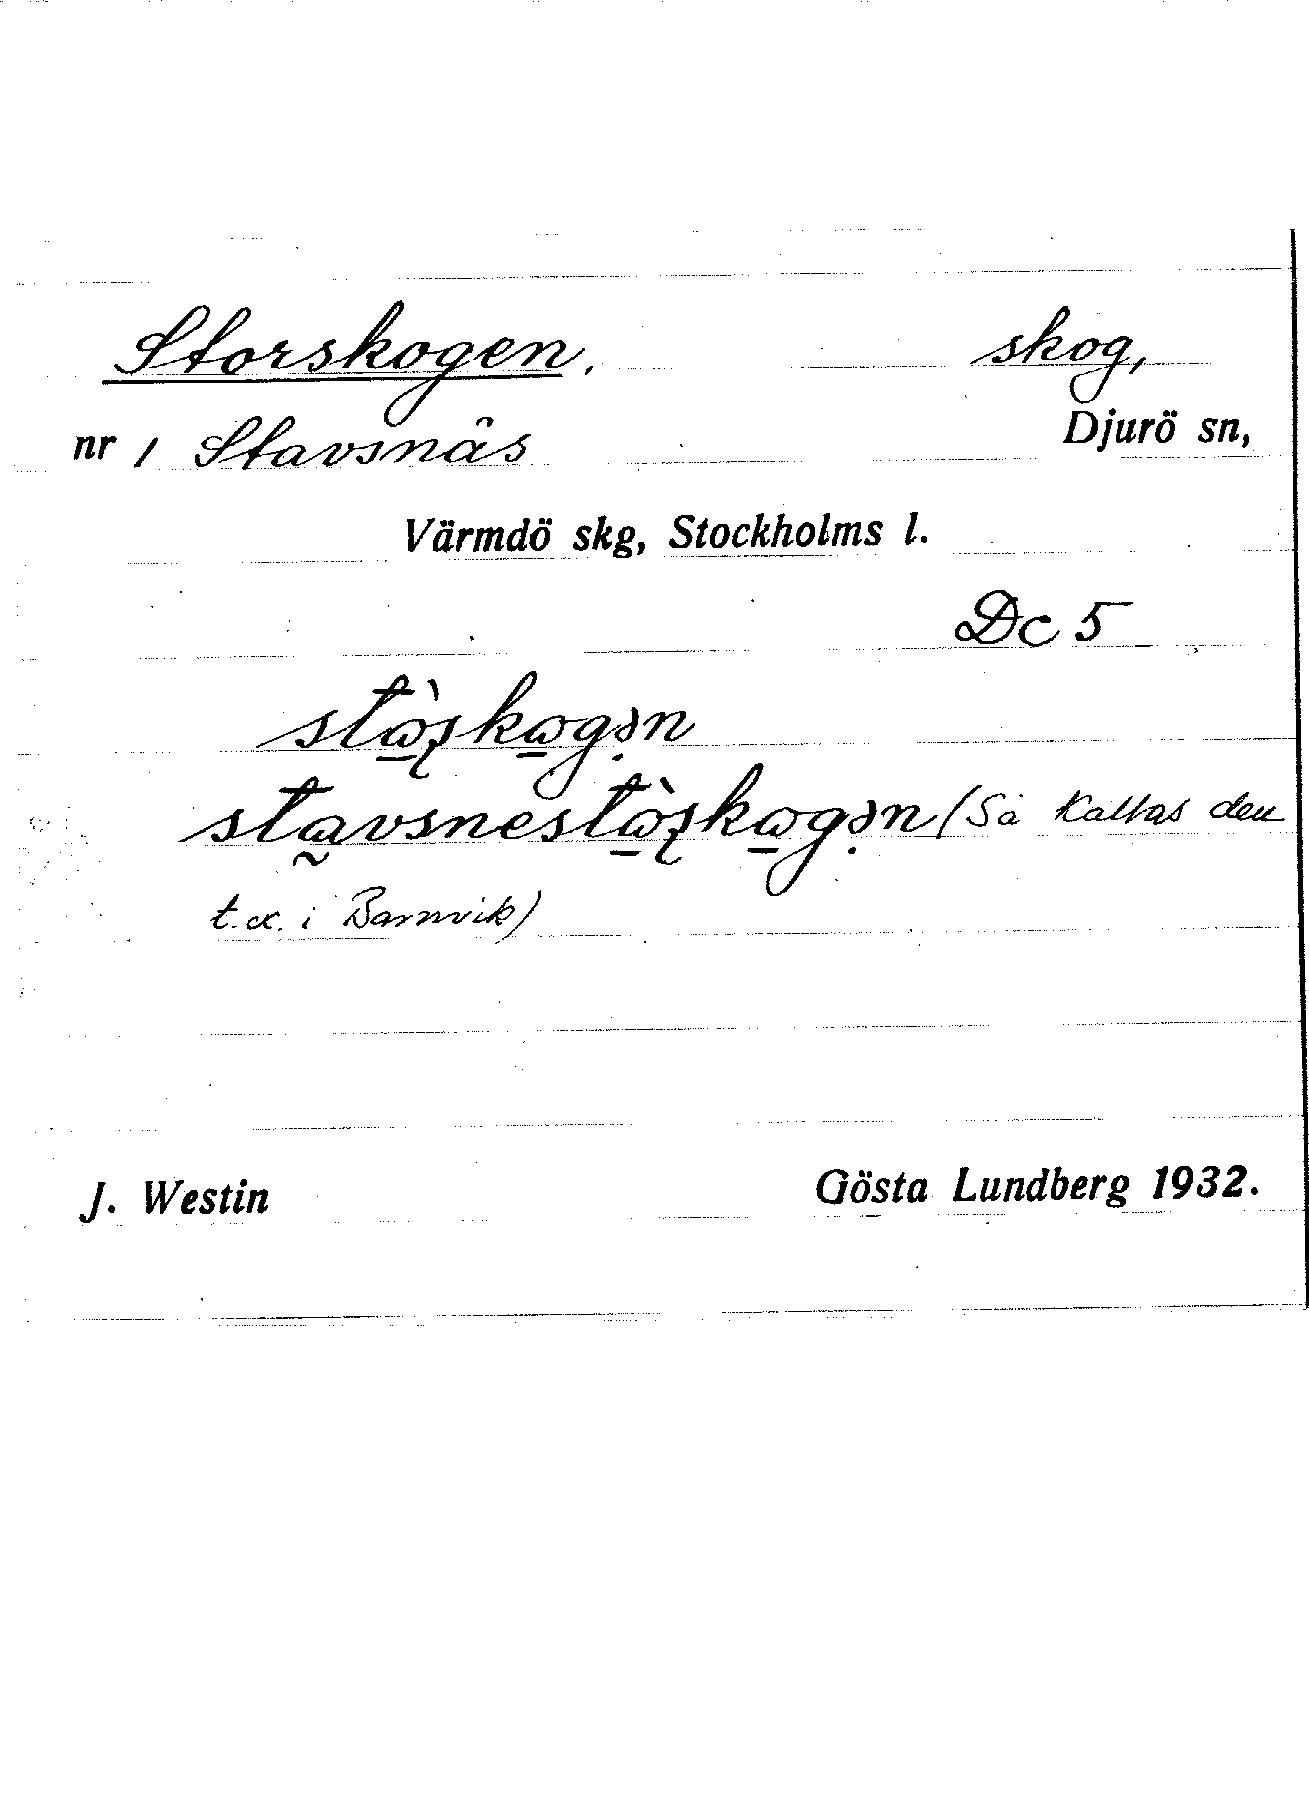 Storskogen. skog,
nr 1 Stavsnäs Djurö sn,
Värmdö skg, Stockholms l.
Dc 5
stⱺ̀ʂkⱺgən
stavsnestⱺ̀ʂkⱺgən (Så kallas den
t.ex. i Barnvik)
J. Westin Gösta Lundberg 1932.